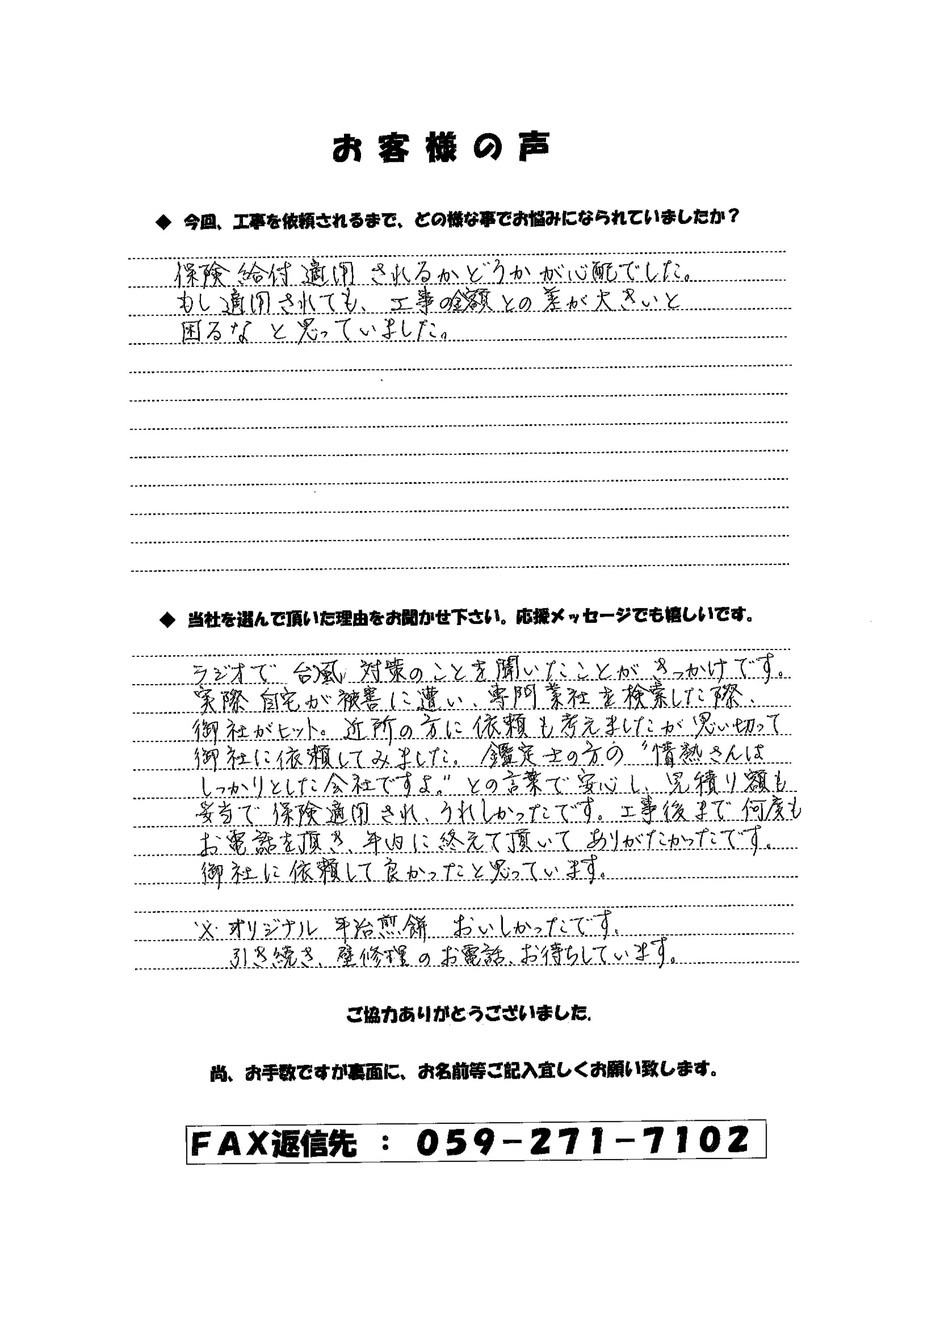 お客様の声
◆ 今回、工事を依頼されるまで、どの様な事でお悩みになられていましたか？
保険給付適用されるかどうかが心配でした。
もし適用されても、工事の金額との差が大きいと
困るなと思っていました。
◆ 当社を選んで頂いた理由をお聞かせ下さい。応援メッセージでも嬉しいです。
ラジオで台風対策のことを聞いたことがきっかけです。
実際自宅が被害に遭い、専門業社を検索した際、
御社がヒット。近所の方に依頼も考えましたが思い切って
御社に依頼してみました。鑑定士の方の“情熱さんは
しっかりとした会社ですよ”との言葉で安心し、見積り額も
妥当で保険適用され、うれしかったです。工事後まで何度も
お電話を頂き、年内に終えて頂いてありがたかったです。
御社に依頼して良かったと思っています。
※オリジナル平治煎餅おいしかったです。
引き続き、壁修理のお電話、お待ちしています。
ご協力ありがとうございました.
尚、お手数ですが裏面に、お名前等ご記入宜しくお願い致します。
ＦＡＸ返信先：０５９－２７１－７１０２